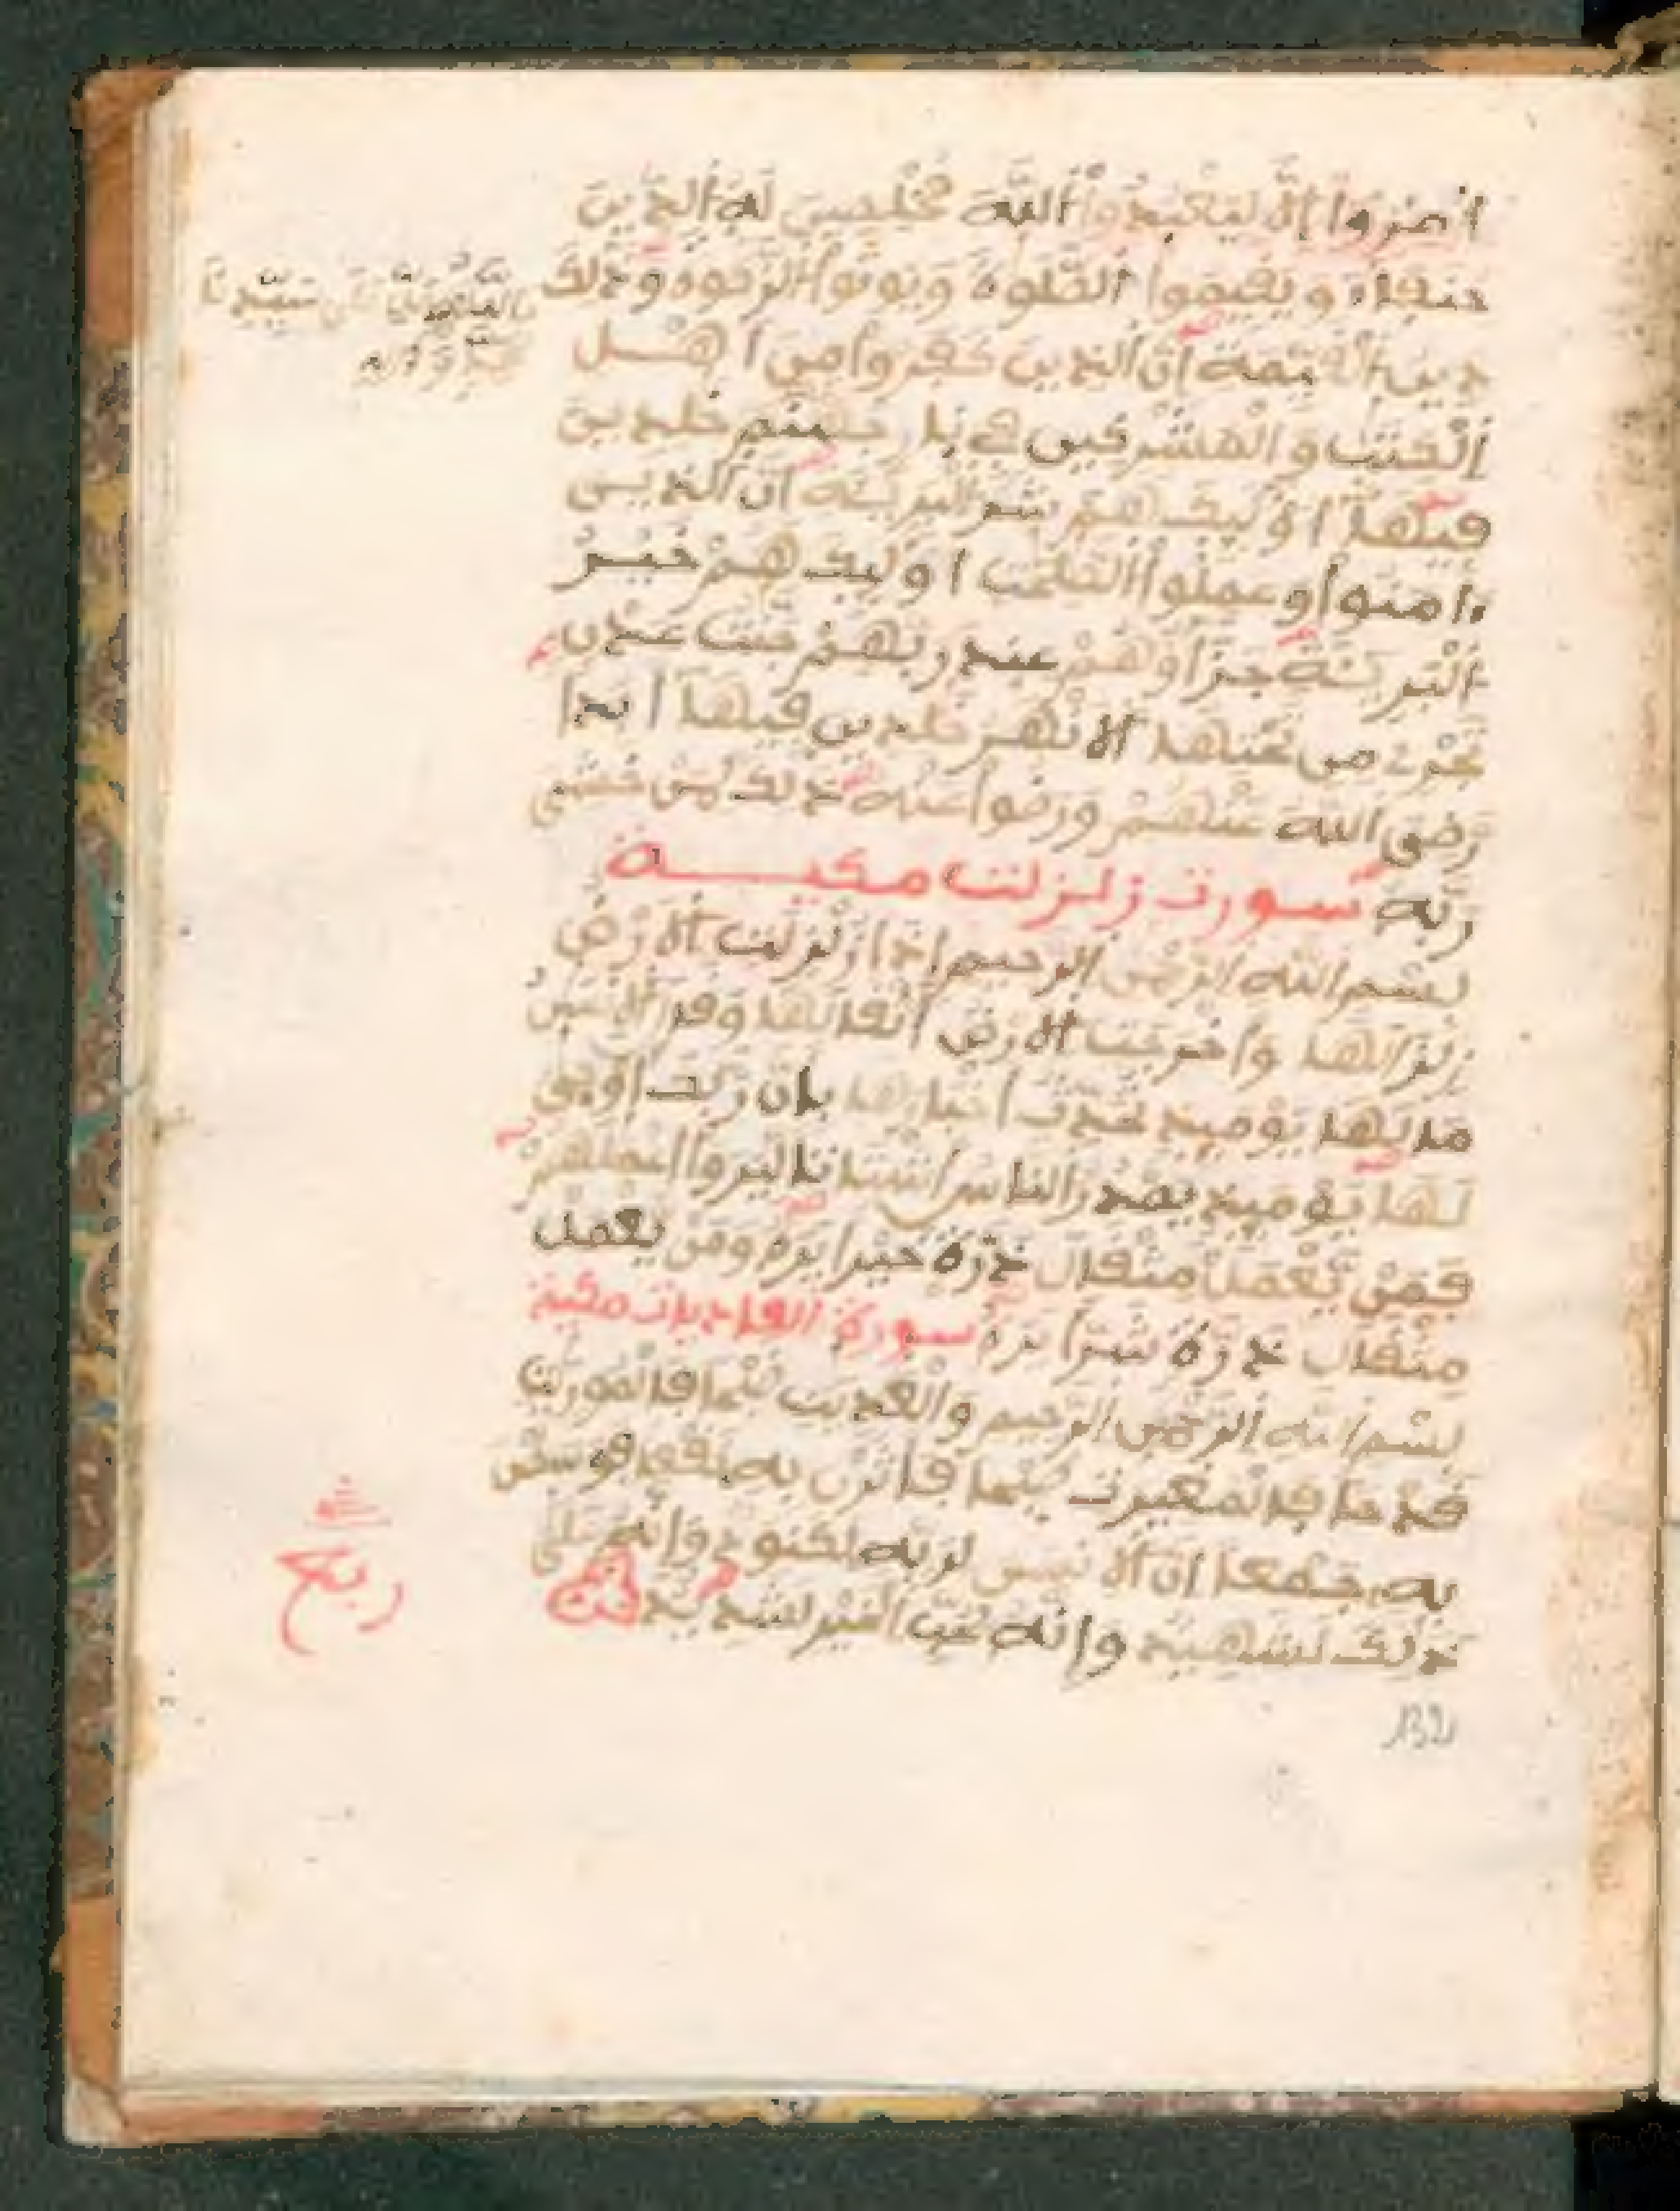 امروا إلا ليعبدوا الله مخلصين له الدين
حنفاء ويقيموا الصلوة ويوتوا الزكوة وذلك
دين القيمة ان الذين كفروا من اهل
الكتب والمشركين في نار جهنم خلدين
فيها اوليك هم شر البريئة ان الذين
ءامنوا وعملوا الصلحت اوليك هم خير
البريئة جزاؤهم عند ربهم جنت عدن
تجري من تحتها الانهر خلدين فيها ابدا
رضى الله عنهم ورضوا عنه ذلك لمن خشى
ربه سورت زلزلت مكية
بسم الله الرحمن الرحيم إذا زلزلت الارض
زلزالها وأخرجت الارض أثقالها وقال الانسن
مالها يوميذ تحدث اخبارها بان ربك اوحى
لها يوميذ يصدر الناس اشتاتا ليروا اعملهم
فمن يعمل مثقال ذرة خيرا يره ومن يعمل
مثقال ذرة شرا يره سورة العاديات مكية
بسم الله الرحمن الرحيم والعديت ضبحا فالموريت
قدحا فالمغيرت صبحا فاثرن به نقعا فوسطن
به جمعا ان الانسن لربه لكنود وإنه على
ذلك لشهيد وإنه لحب الخير لشديد
ربع
132